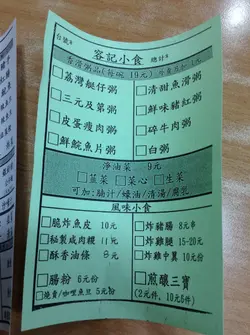 台號#
容記小食 總計$
香滑粥品(每碗 19元)
□荔灣艇仔粥 □清甜魚滑粥
□三元及第粥 □鮮味豬紅粥
□皮蛋瘦肉粥 □碎牛肉粥
□鮮鯇魚片粥 □白粥
淨油菜 9元
□韮菜 □菜心 □生菜
可加:腩汁/蠔油/清湯/腐乳
風味小食
□脆炸魚皮 10元 □炸豬腸 8元
□秘製咸肉糭 □炸雞腿 15-20元
□酥香油條 □炸雞中翼 10元
□腸粉 6元 □煎釀三寶
□燒賣/咖哩魚旦 5元 (2元件, 10元6件)